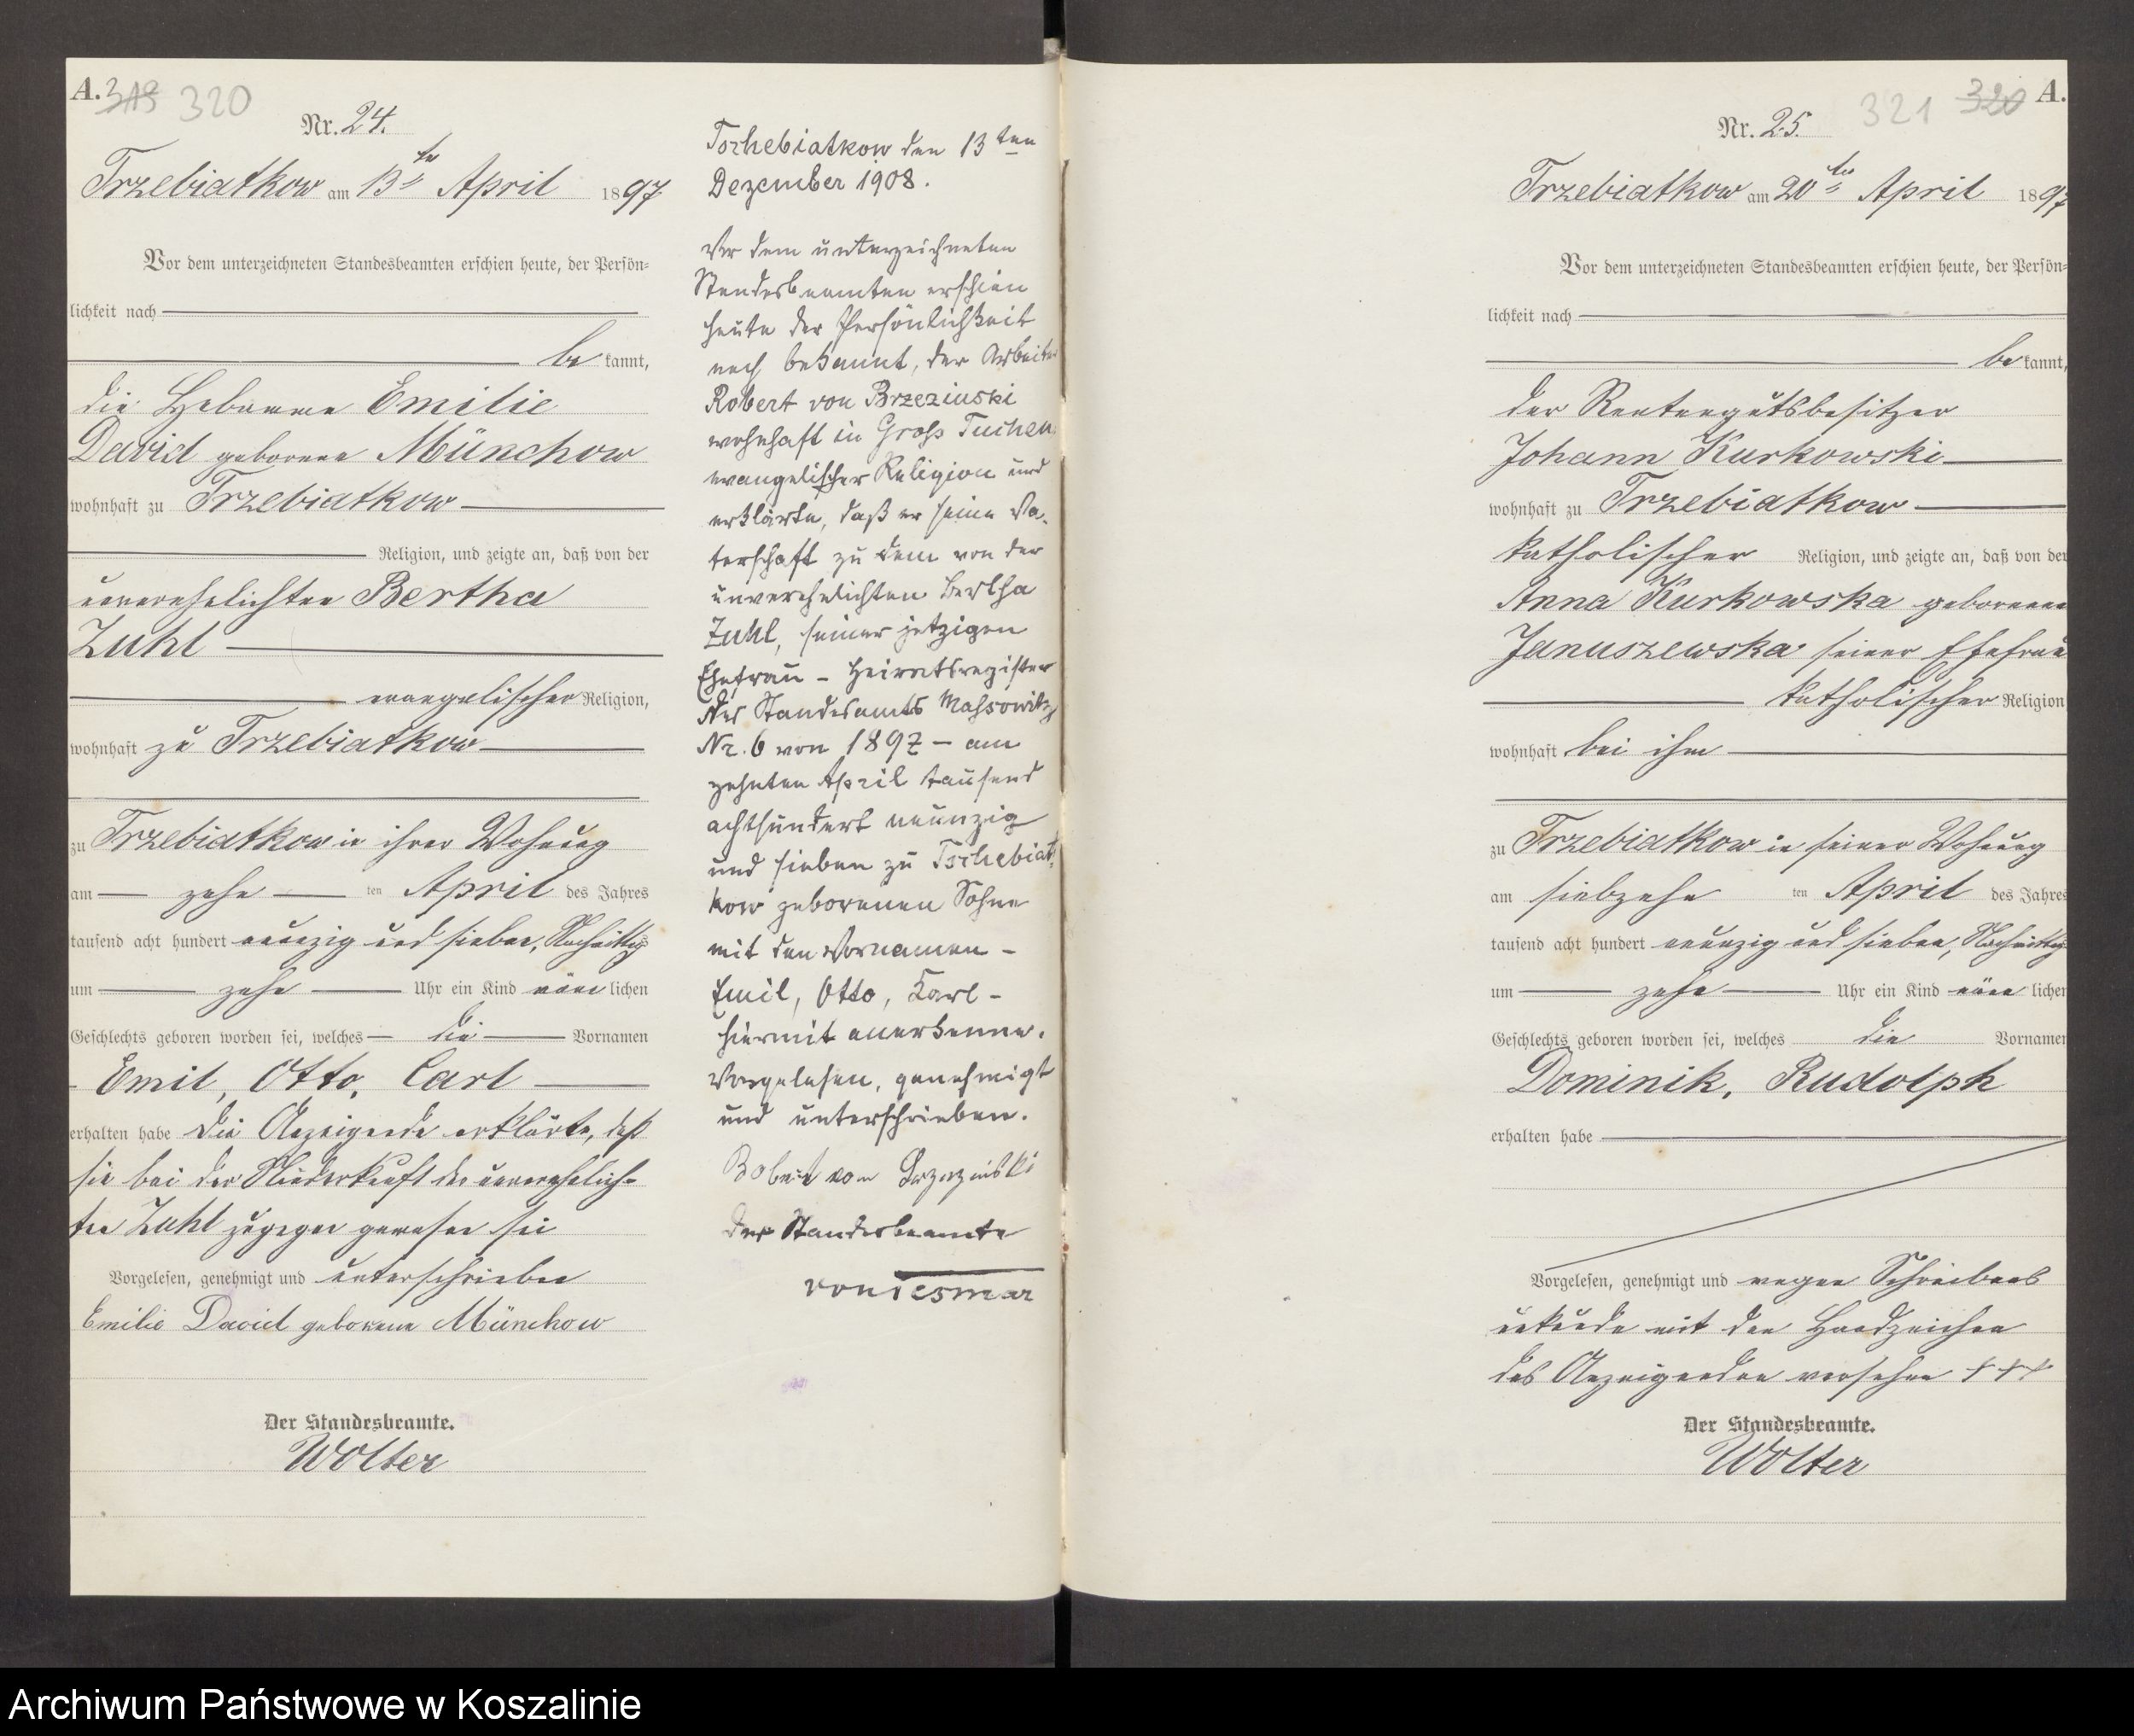 A. 319 320
Nr. 24.
Trzebiatkow am 13ten April 1897
Vor dem unterzeichneten Standesbeamten erschien heute, der Persön-
lichkeit nach
be kannt,
die Hebamme Emilie
David geborene Münchow
wohnhaft zu Trzebiatkow
Religion, und zeigte an, daß von der
unverehelichten Bertha
Zuhl
evangelischer Religion,
wohnhaft zu Trzebiatkow
zu Trzebiatkow in ihrer Wohnung
am zehn ten April des Jahres
tausend acht hundert neunzig und sieben, Nachmittags
um zehn Uhr ein Kind männ lichen
Geschlechts geboren worden sei, welches die Vornamen
Emil, Otto, Carl
erhalten habe Die Anzeigende erklärte, daß
sie bei der Niederkunft der unverehelich-
ten Zuhl zugegen gewesen sei
Vorgelesen, genehmigt und unterschrieben
Emilie David geborene Münchow
Der Standesbeamte.
Wolter
Tschebiatkow den 13ten
Dezember 1908.
Vor dem unterzeichneten
Standesbeamten erschien
heute der Persönlichkeit
nach bekannt, der Arbeiter
Robert von Brzezinski
wohnhaft in Groß Tuchen
evangelischer Religion und
erklärte, daß er seine Va-
terschaft zu dem von der
unverehelichten Bertha
Zuhl, seiner jetzigen
Ehefrau - Heiratsregister
des Standesamts Massowitz
Nr. 6 von 1897 - am
zehnten April tausend
achthundert neunzig
und sieben zu Tschebiat-
kow geborenen Sohne
mit den Vornamen -
Emil, Otto, Karl -
hiermit anerkenne.
Vorgelesen, genehmigt
und unterschrieben.
Robert von Brzezinski
Der Standesbeamte
von Tesmar
321 320 A.
Nr. 25.
Trzebiatkow am 20ten April 1897
Vor dem unterzeichneten Standesbeamten erschien heute, der Persön-
lichkeit nach
be kannt,
der Rentengutsbesitzer
Johann Kurkowski
wohnhaft zu Trzebiatkow
katholischer Religion, und zeigte an, daß von der
Anna Kurkowska geborenen
Januszewska seiner Ehefrau
katholischer Religion
wohnhaft bei ihm
zu Trzebiatkow in seiner Wohnung
am siebzehn ten April des Jahres
tausend acht hundert neunzig und sieben, Nachmittags
um zehn Uhr ein Kind männ lichen
Geschlechts geboren worden sei, welches die Vornamen
Dominik, Rudolph
erhalten habe
Vorgelesen, genehmigt und wegen Schreibens
unkunde mit den Handzeichen
des Anzeigenden versehen +++
Der Standesbeamte.
Wolter
Archiwum Państwowe w Koszalinie